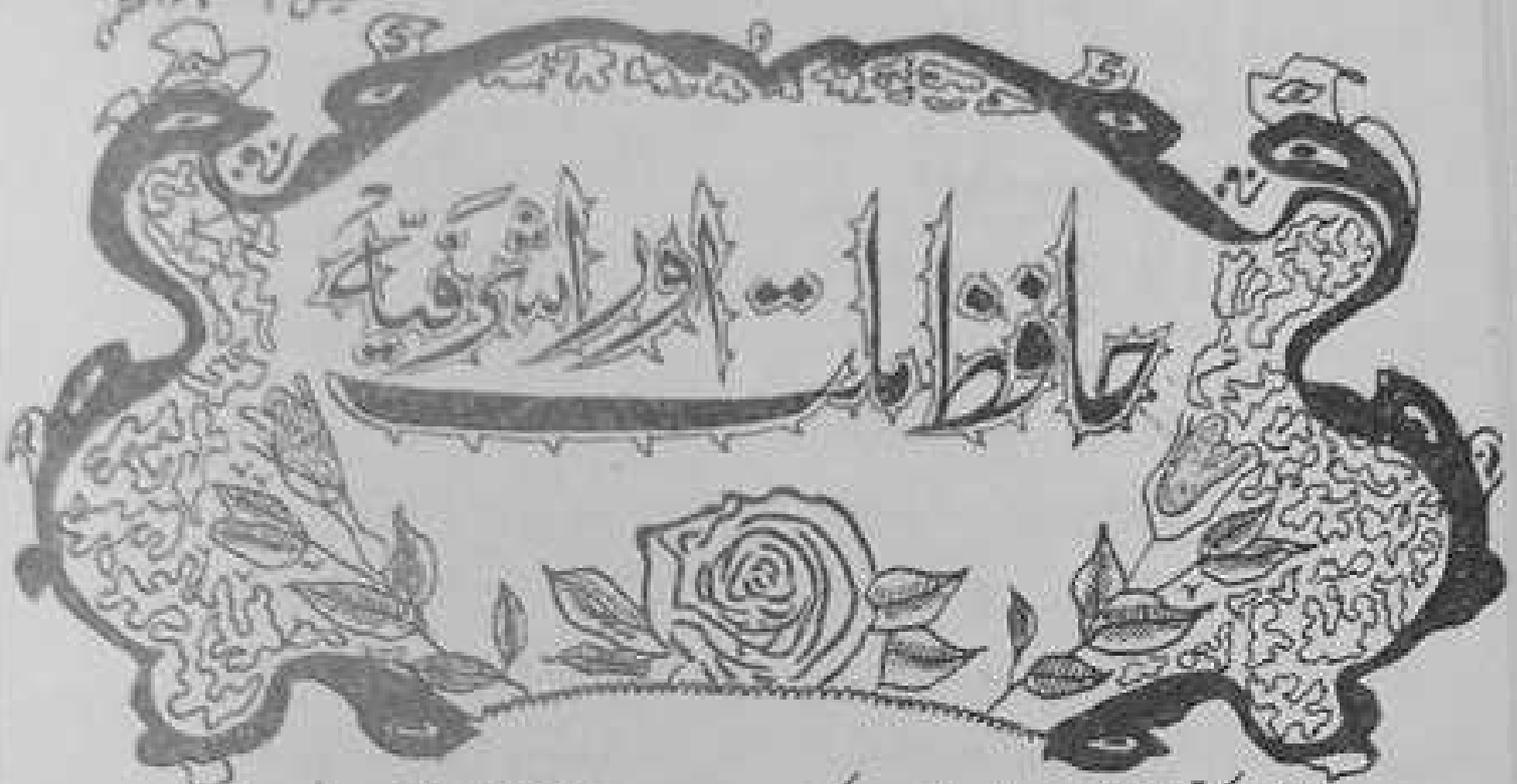 حافظ ملت اور اشرفیہ